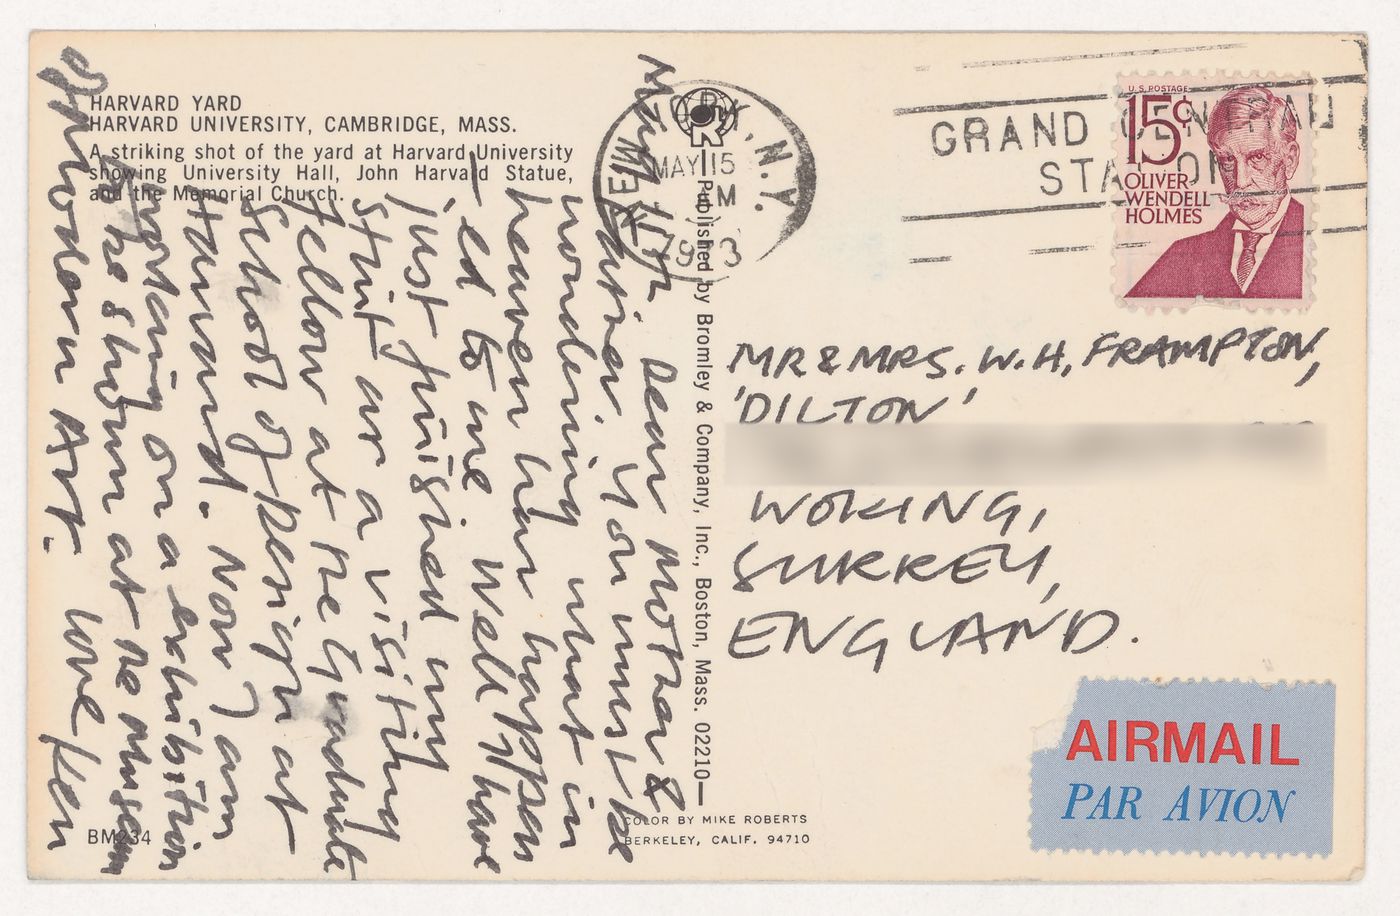 HARVARD YARD
HARVARD UNIVERSITY, CAMBRIDGE, MASS.
A striking shot of the yard at Harvard University
showing University Hall, John Harvard Statue,
and the Memorial Church.
May 15th Dear Mother &
Father. You must be
wondering what in
heaven has happen
-ed to me. Well I have
just finished my
stint as a visiting
fellow at the Graduate
School of Design at
Harvard. Now I am
working on a exhibition
to be shown at the Museum
of Modern Art.    love Ken
BM234
Published by Bromley & Company, Inc., Boston, Mass. 02210
COLOR BY MIKE ROBERTS
BERKELEY, CALIF. 94710
N.Y.
MAY 15
PM
GRAND CENTRAL
STATION
U.S. POSTAGE
15¢
OLIVER
WENDELL
HOLMES
MR & MRS. W. H. FRAMPTON,
'DILTON'
WOKING,
SURREY,
ENGLAND.
AIRMAIL
PAR AVION